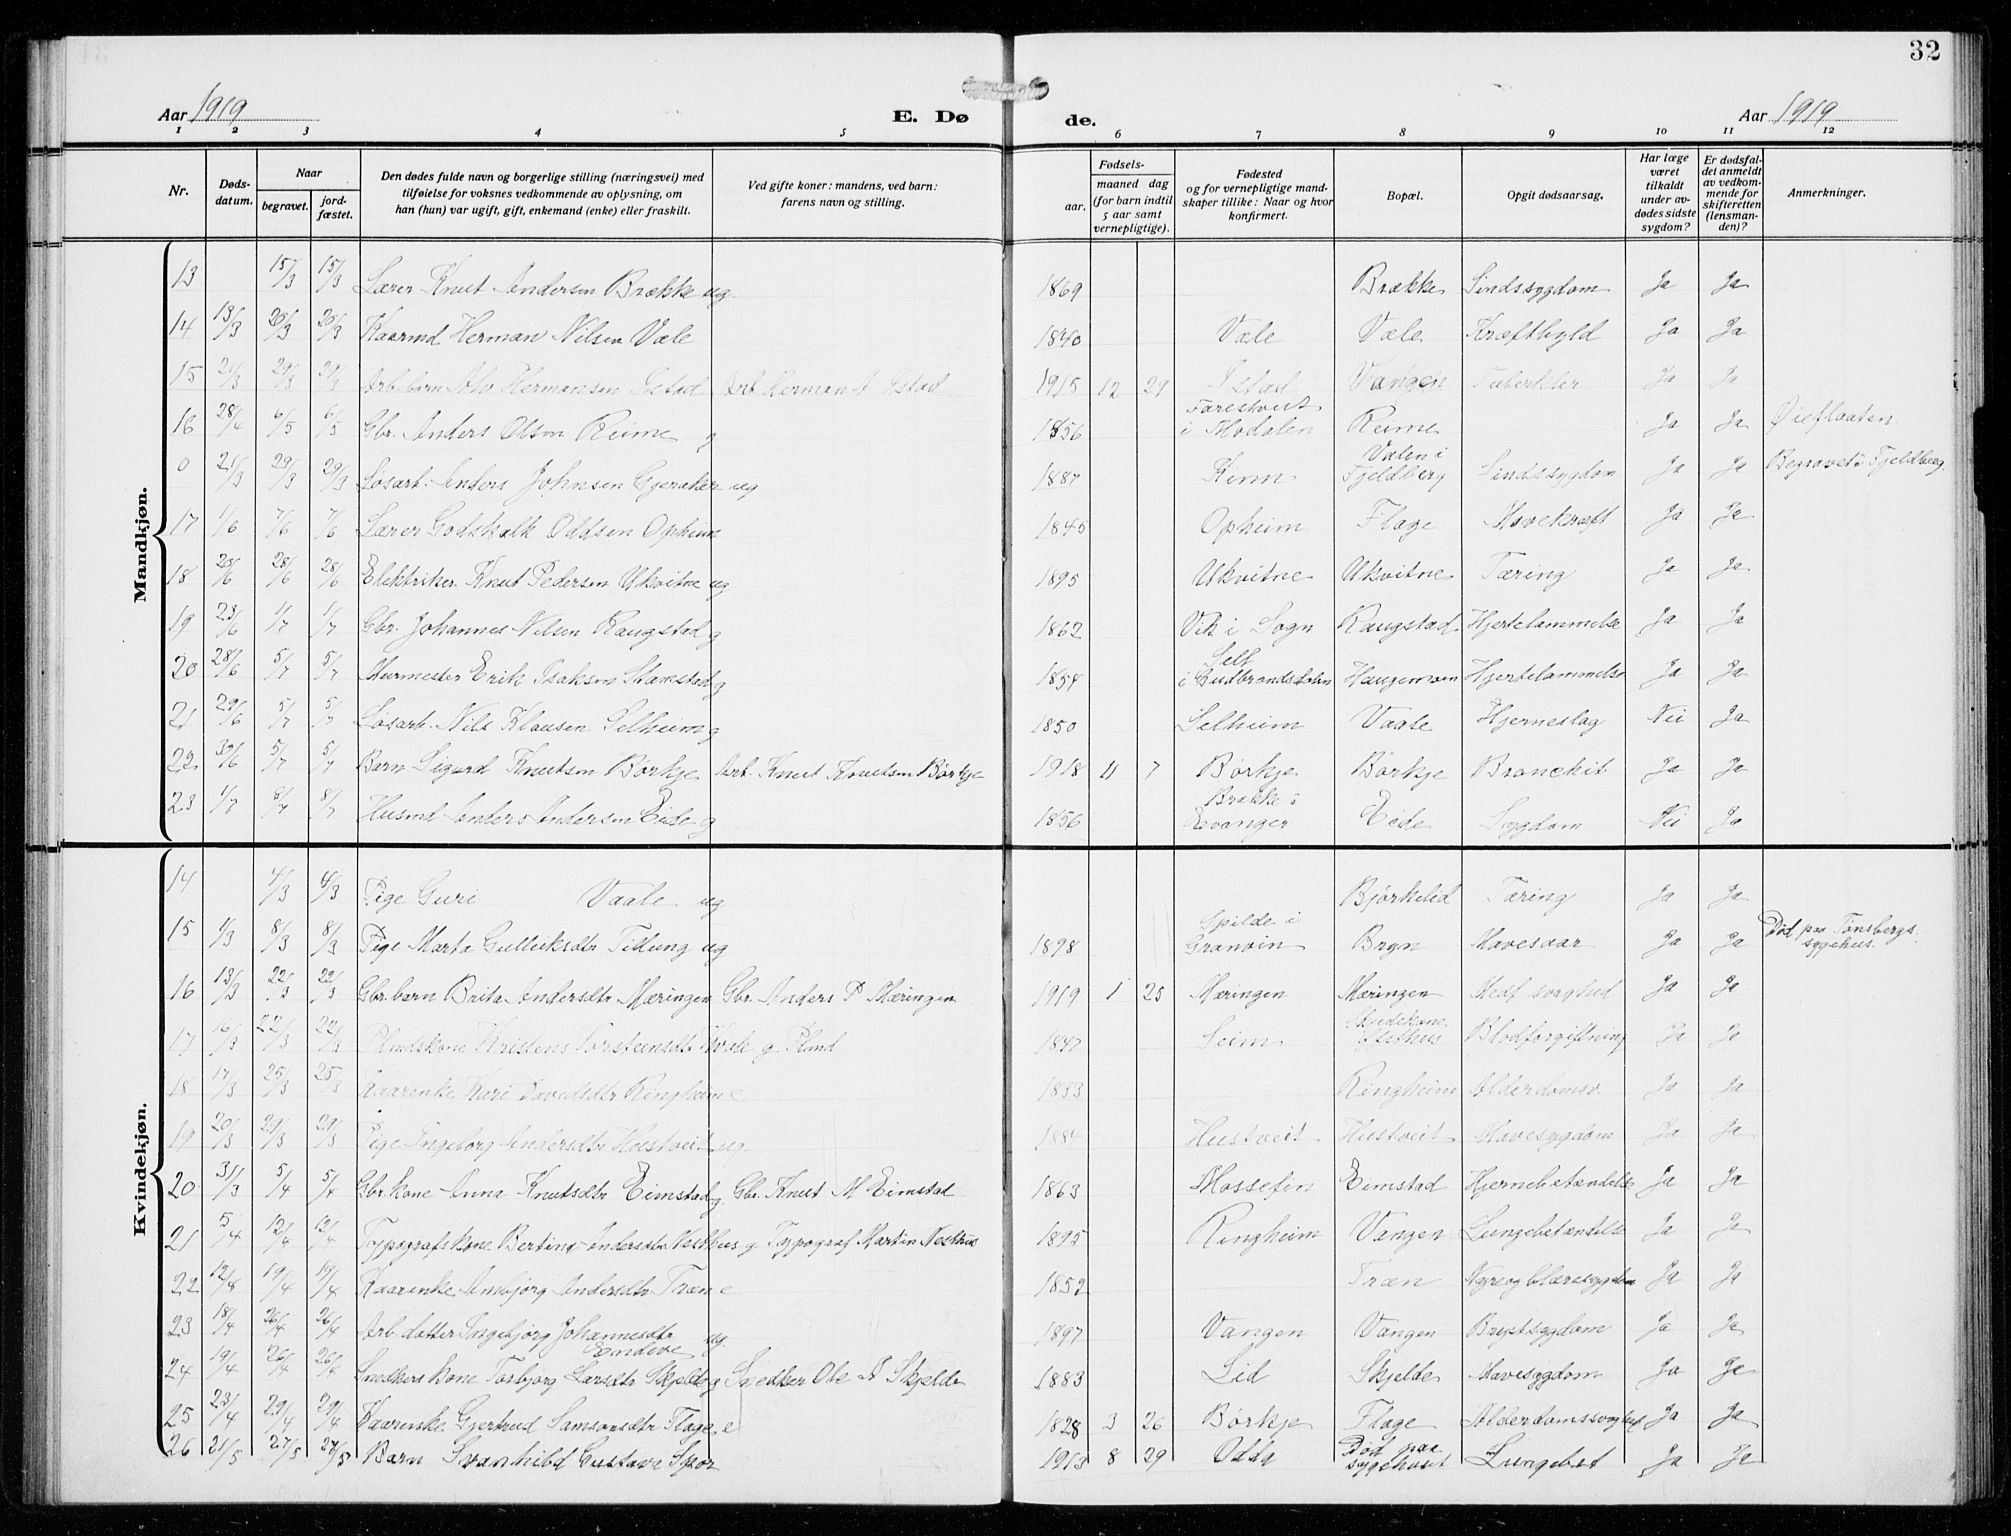 32
Aar 1919 E. Dø de. Aar 1919
1 2 3 4 5 6 7 8 9 10 11 12
Nr. Døds-datum. Naar begravet. jord-fæstet. Den dødes fulde navn og borgerlige stilling (næringsvei) med tilføielse for voksnes vedkommende av oplysning, om han (hun) var ugift, gift, enkemand (enke) eller fraskilt. Ved gifte koner: mandens, ved barn: farens navn og stilling. Fødsels- aar. maaned dag (for barn indtil 5 aar samt vernepligtige). Fødested og for vernepligtige mand-skaper tillike: Naar og hvor konfirmert. Bopæl. Opgit dødsaarsag. Har læge været tilkaldt under av-dødes sidste sygdom? Er dødsfal-det anmeldt av vedkom-mende for skifteretten (lensman-den)? Anmerkninger.
Mandkjøn.
13 15/3 15/3 Lærer Knut Andersen Brække ug 1869 Brække Sindssygdom Ja Ja
14 13/3 20/3 20/3 Kaarmd Herman Nilsen Væle 1840 Væle Væle Kræftbyld Ja Ja
15 21/3 29/3 29/3 Arb. barn Hermansen Istad Arb. Herman A Istad 1915 12 29 Istad Vangen Tuberkler Ja Ja
16 28/4 6/5 6/5 Gbr. Anders Olsen Reime g 1856 Farestveit i Modalen Reime Ja Ja Øieflaaten
0 21/3 29/3 29/3 Løsarb. Anders Johnsen Gjeraker ug 1887 Kinn Valen i Fjeldberg Sindssygdom Ja Ja Begravet i Fjeldberg
17 1/6 7/6 7/6 Lærer Godskalk Oddsen Opheim 1845 Opheim Flage Mavekræft Ja Ja
18 20/6 28/6 28/6 Elektriker Knut Pedersen Ukvitne ug 1895 Ukvitne Ukvitne Tæring Ja Ja
19 23/6 1/7 1/7 Gbr. Johannes Nilsen Raugstad g 1862 Vik i Sogn Raugstad Hjertelammelse Ja Ja
20 28/6 5/7 5/7 Murmester Erik Isaksen g 1854 Sell i Gudbrandsdalen Haugamoen Hjertelammelse Ja Ja
21 29/6 5/7 5/7 Løsarb. Nils Klausen Selheim g 1850 Selheim Vaale Hjerneslag Nei Ja
22 30/6 5/7 5/7 Barn Sigurd Knutsen Børkje Arb. Knut Knutsen Børkje 1918 11 7 Børkje Børkje Bronckit Ja Ja
23 1/7 8/7 8/7 Husmd Anders Andersen Eide g 1856 Brække i Evanger Eide Sygdom Nei Ja
Kvindekjøn.
14 4/3 4/3 Pige Guri Vaale ug Bjørkelid Tæring Ja Ja
15 1/3 8/3 8/3 Pige Marta Gulleiksdtr Tillung ug 1898 Spilde i Granvin Bryn Mavesaar Ja Ja Død paa Tønsbergs sygehus.
16 13/3 22/3 22/3 Gbr. barn Brita Andersdtr Mæringen Gbr. Anders P Mæringen 1919 1 25 Mæringen Mæringen Medf svaghed Ja Ja
17 16/3 22/3 22/3 Plmdskone Kristens Torsteinsdtr g. Plmd 1847 Seim Blodforgiftning Ja Ja
18 17/3 25/3 25/3 Kaarenke Kari Davidsdtr Ringheim e 1833 Ringheim Alderdomsv. Ja Ja
19 20/3 29/3 29/3 Pige Ingeborg Andersdtr Hustveit ug. 1884 Hustveit Hustveit Mavesygdom Ja Ja
20 31/3 5/4 5/4 Gbr. kone Anna Knutsdtr Eimstad g. Gbr. Knut M Eimstad 1863 Mossefin Eimstad Hjernebetændelse Ja Ja
21 5/4 12/4 12/4 Typografs kone Bertine Andersdtr Nesthus g Typograf Martin Nesthus 1895 Ringheim Vangen Lungebetændelse Ja Ja
22 12/4 19/4 19/4 Kaarenke Anbjørg Andersdtr Træn e 1852 Træn Nyre og blæresygdom Ja Ja
23 18/4 26/4 26/4 Arb. datter Ingebjørg Johannesdtr Endeve ug. 1897 Vangen Vangen Brystsygdom Ja Ja
24 19/4 26/4 26/4 Snedkers kone Torbjørg Larsdtr Skjelde g Snedker Ole Skjelde 1883 Lid Skjelde Mavesygdom Ja Ja
25 23/4 29/4 29/4 Kaarenke Gjertrud Samsonsdtr Flage e 1828 3 26 Børkje Flage Alderdomssvaghet Ja Ja
26 21/5 27/5 27/5 Barn Svanhild Gustava Spor 1913 8 29 Odda Død paa sygehuset Lungebet Ja Ja